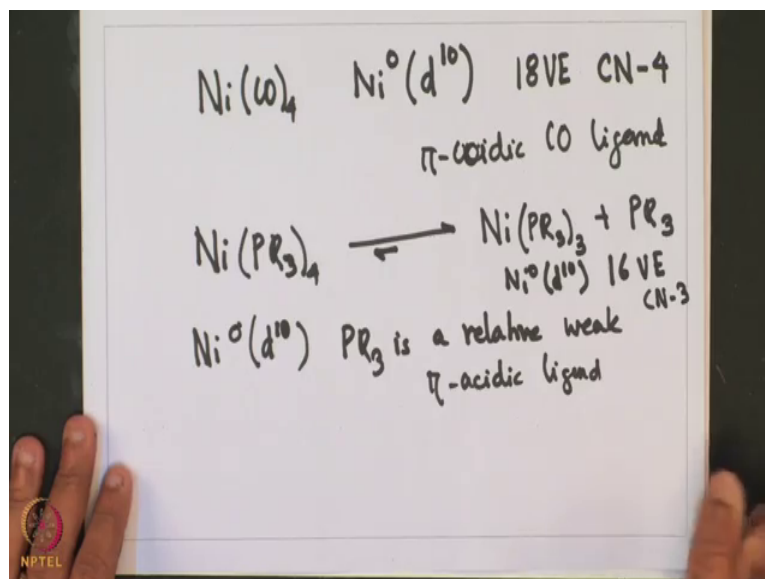 Ni(CO)₄ Ni⁰(d¹⁰) 18VE CN-4
π-acidic CO ligand
Ni(PR₃)₄ ⇌ Ni(PR₃)₃ + PR₃
Ni⁰(d¹⁰) 16 VE
CN-3
Ni⁰(d¹⁰) PR₃ is a relative weak
π-acidic ligand
NPTEL